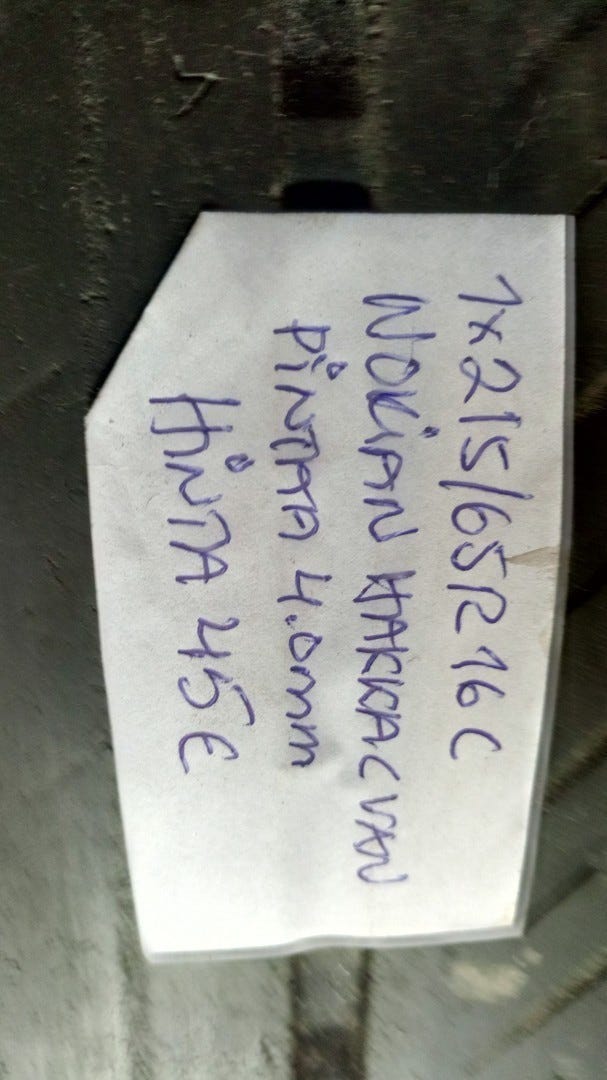 1x215/65R16C
NOKIAN HAKKA C VAN
PINTAA 4.0mm
HINTA 45€